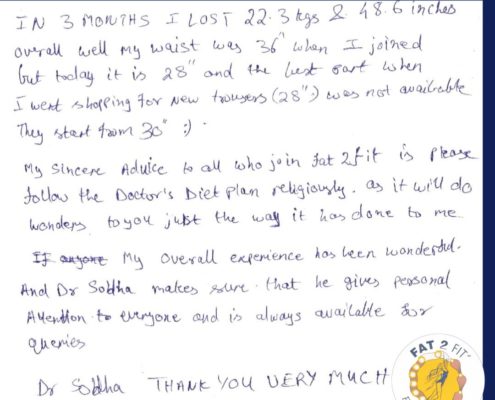 IN 3 MONTHS I LOST 22.3 kgs & 48.6 inches
overall well my waist was 36" when I joined
but today it is 28" and the best part when
I went shopping for New trousers (28") was not available
They start from 30" :) .
My Sincere Advice to all who join fat 2 fit is please
follow the Doctor's Diet plan religiously. as it will do
wonders to you just the way it has done to me
If anyone My overall experience has been wonderful.
And Dr Sobha makes sure that he gives personal
Attention to everyone and is always available for
queries
Dr Sobha THANK YOU VERY MUCH
FAT 2 FIT